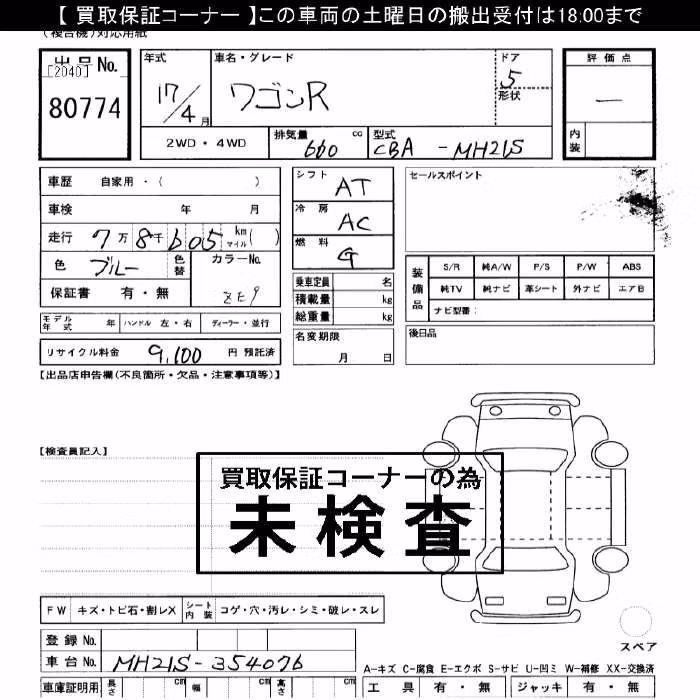 【 買取保証コーナー 】この車両の土曜日の搬出受付は18:00まで
(複合機)対応用紙
出品No.
[2040]
80774
年式
17/4月
車名・グレード
ワゴンR
ドア
5
形状
評価点
—
内装
2WD・4WD
排気量
660
cc
型式
CBA -MH21S
車歴 自家用・( )
車検 年 月
走行 7万8千605 km マイル( )
色 ブルー
色替
カラーNo.
ZE9
保証書 有・無
シフト AT
冷房 AC
燃料 G
乗車定員 名
積載量 kg
総重量 kg
セールスポイント
装備品
S/R 純A/W P/S P/W ABS
純TV 純ナビ 革シート 外ナビ エアB
ナビ型番:
モデル年式 年 ハンドル 左・右 ディーラー・並行
リサイクル料金 9,100 円 預託済
名変期限
月 日
後日品
【出品店申告欄(不良箇所・欠品・注意事項等)】
【検査員記入】
買取保証コーナーの為
未検査
FW キズ・トビ石・割レX
シート内装 コゲ・穴・汚レ・シミ・破レ・スレ
登録No.
車台No. MH21S-354076
スペア
A-キズ C-腐食 E-エクボ S-サビ U-凹ミ W-補修 XX-交換済
車庫証明用 長さ cm 幅 cm 高さ cm
工具 有・無 ジャッキ 有・無